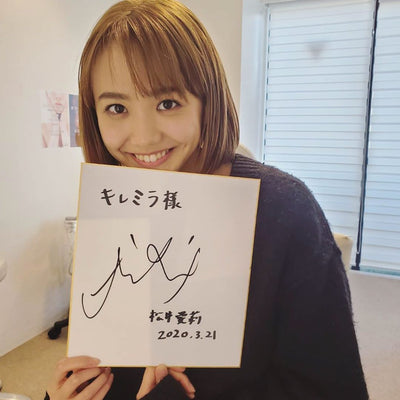 キレミラ様
松井愛莉
2020.3.21